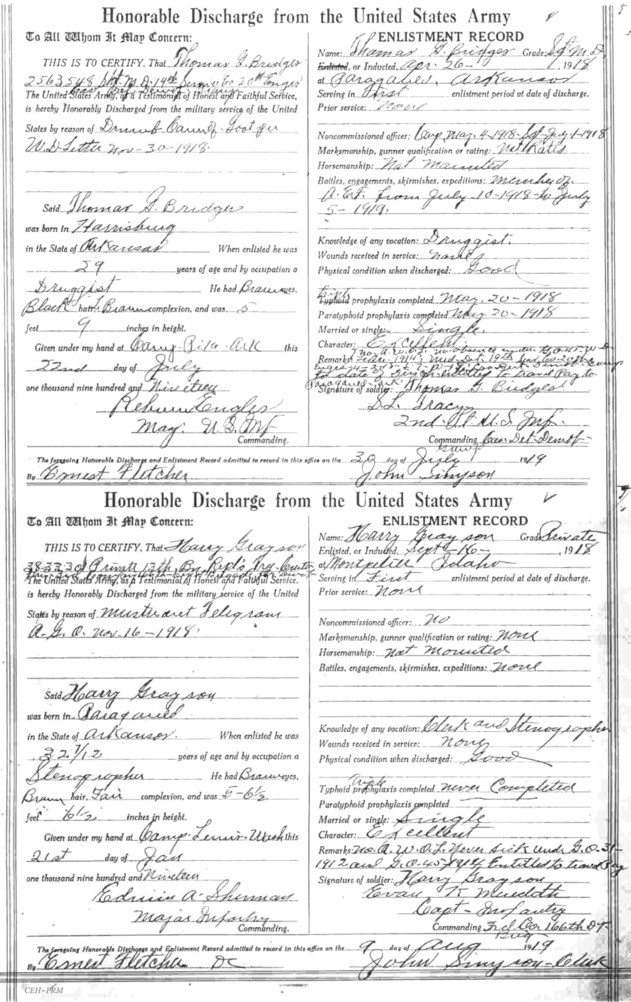 Honorable Discharge from the United States Army
To All Whom It May Concern:
THIS IS TO CERTIFY, That Thomas G. Bridges
2563548 Sgt. M.D. 19th
The United States Army, as a Testimonial of Honest and Faithful Service,
is hereby Honorably Discharged from the military service of the United
States by reason of
W.D. Letter Nov-30-1918
Said Thomas G. Bridges
was born in Harrisburg
in the State of Arkansas When enlisted he was
29 years of age and by occupation a
Druggist He had Brown eyes,
Black hair, Brown complexion, and was 5
feet 9 inches in height.
Given under my hand at Camp Pike-Ark this
22nd day of July
one thousand nine hundred and Nineteen
Engler
Maj. U.S. Inf
Commanding.
ENLISTMENT RECORD
Name: Thomas G. Bridges Grade: Sgt M.D.
Enlisted, or Inducted, Apr. 26- 1918
at Paragould, Arkansas
Serving in First enlistment period at date of discharge.
Prior service: None
Noncommissioned officer: Corp. May. 4-1918-Sgt July 1-1918
Marksmanship, gunner qualification or rating: Not
Horsemanship: Not Mounted
Battles, engagements, skirmishes, expeditions: Member of
A.E.F. from July 10-1918-to July
5-1919.
Knowledge of any vocation: Druggist.
Wounds received in service: None
Physical condition when discharged: Good
Typhoid prophylaxis completed May. 20-1918
Paratyphoid prophylaxis completed May 20-1918
Married or single: Single.
Character: Excellent
Remarks:
Signature of soldier: Thomas G. Bridges
Tracy
2nd. Lt U.S Inf.
Commanding
The foregoing Honorable Discharge and Enlistment Record admitted to record in this office on the 30 day of July 1919
By Ernest Fletcher John Simpson
Honorable Discharge from the United States Army
To All Whom It May Concern:
THIS IS TO CERTIFY, That Harry Grayson
Private 12th
The United States Army, as a Testimonial of Honest and Faithful Service,
is hereby Honorably Discharged from the military service of the United
States by reason of Telegram
A.G.O. Nov. 16-1918.
Said Harry Grayson
was born in Paragould
in the State of Arkansas. When enlisted he was
years of age and by occupation a
Stenographer He had Brown eyes,
Brown hair, Fair complexion, and was 5-6½
feet 6½ inches in height.
Given under my hand at Camp Lewis-Wash this
21st day of Jan
one thousand nine hundred and Nineteen
Edwin A. Sherman
Major Infantry
Commanding.
ENLISTMENT RECORD
Name: Harry Grayson Grade: Private
Enlisted, or Inducted, Sept-16- 1918
at Montpelier Idaho
Serving in First enlistment period at date of discharge.
Prior service: None
Noncommissioned officer: No
Marksmanship, gunner qualification or rating: None
Horsemanship: Not Mounted
Battles, engagements, skirmishes, expeditions: None
Knowledge of any vocation: Clerk and Stenographer
Wounds received in service: None
Physical condition when discharged: Good
Triple
Typhoid prophylaxis completed never Completed
Paratyphoid prophylaxis completed
Married or single: Single
Character: Excellent
Remarks: No A.W.O.L. Never sick under G.O.31-
1912 and G.O.45-1914 Entitled to travel Pay
Signature of soldier: Harry Grayson
Evan K. Meredith
Capt-Infantry
Commanding 166th D.
Brig
The foregoing Honorable Discharge and Enlistment Record admitted to record in this office on the 9 day of Aug 1919
By Ernest Fletcher DC John Simpson-Clerk
CEH-PRM